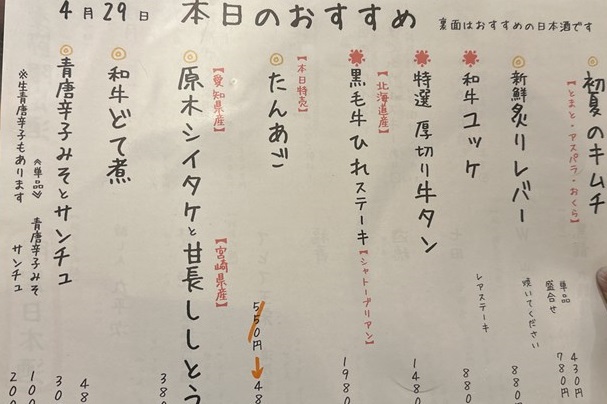 4月29日 本日のおすすめ
裏面はおすすめの日本酒です
初夏のキムチ
【とまと・アスパラ・おくら】
単品 430円
盛合せ 780円
新鮮炙りレバー
焼いてください
880
和牛ユッケ
レアステーキ
880
特選 厚切り牛タン
1480
【北海道産】
黒毛牛ひれステーキ
【シャトーブリアン】
1980
【本日特売】
たんあご
550円→48
【愛知県産】
【宮崎県産】
原木シイタケと甘長ししとう
380
和牛どて煮
48
青唐辛子みそとサンチュ
30
《単品》 青唐辛子みそ 100
サンチュ 200
※生青唐辛子もあります